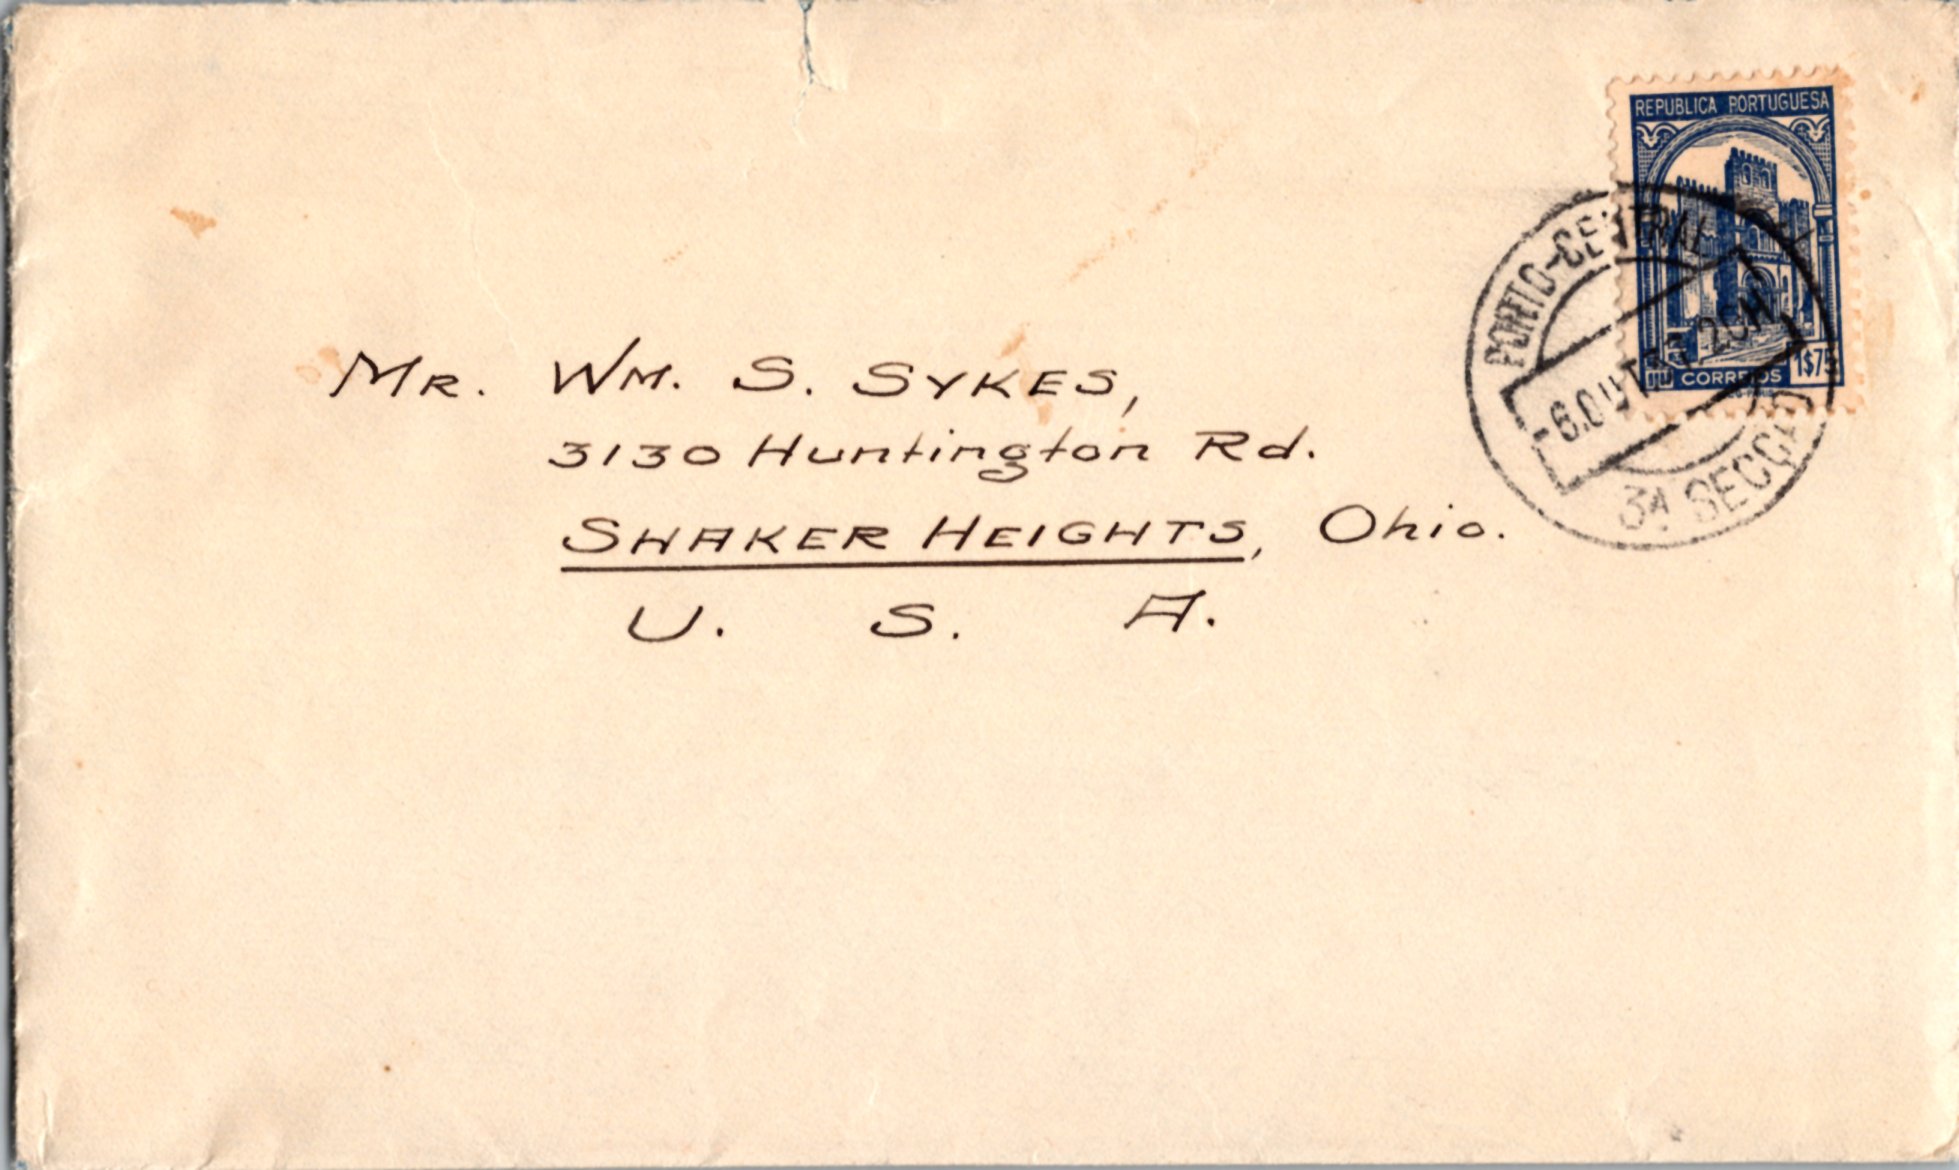 REPUBLICA PORTUGUESA
CORREIOS 1$75
PORTO-CENTRAL
6.OUT 20H
3A SECÇÃO
Mr. Wm. S. Sykes,
3130 Huntington Rd.
SHAKER HEIGHTS, Ohio.
U. S. A.